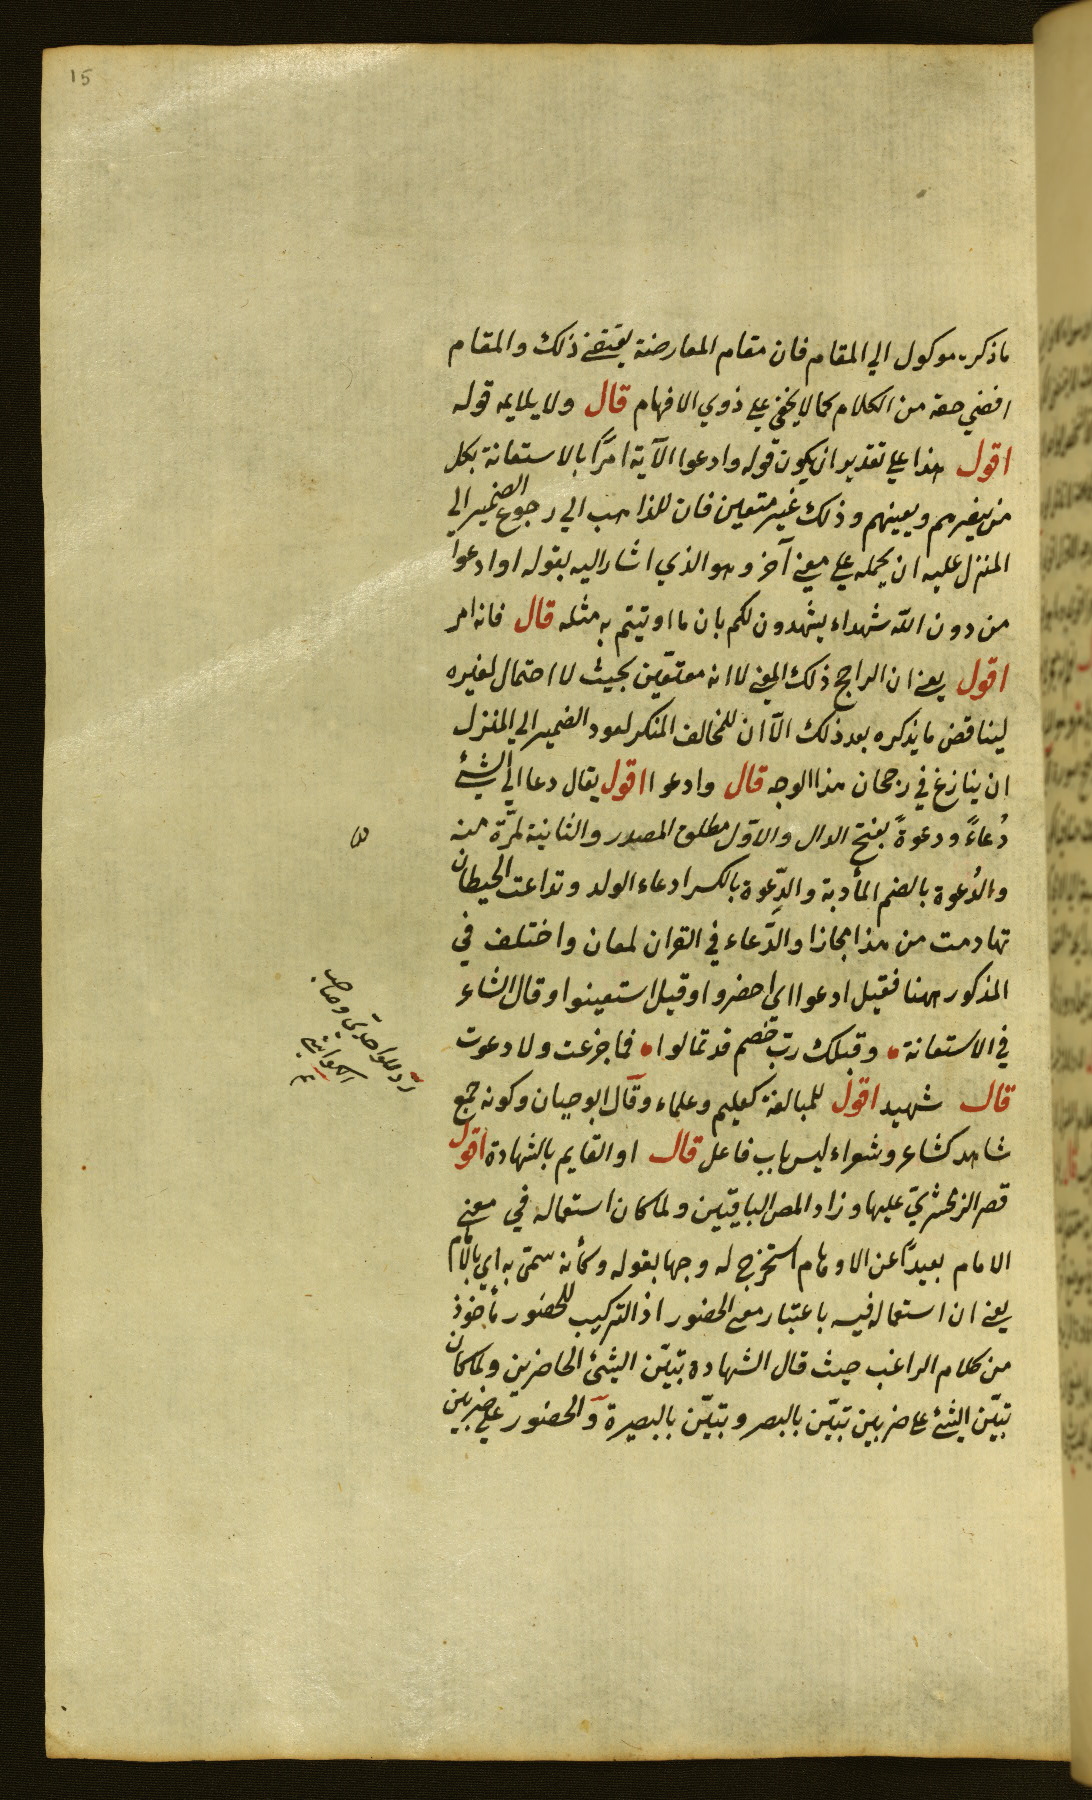 15
ما ذكره موكول الي المقام فان مقام المعارضة يقتضي ذلك والمقام
افضي حقه من الكلام كما لا يخفي علي ذوي الافهام قال ولا يلايمه قوله
اقول هذا علي تقدير ان يكون قوله وادعوا الآية امرًا بالاستعانة بكل
من ينصرهم ويعينهم وذلك غير متعين فان للذاهب الي رجوع الضمير الي
المنزل عليه ان يحمله علي معني آخر وهو الذي اشار اليه بقوله او ادعوا
من دون الله شهداء يشهدون لكم بان ما اوتيتم به مثله قال فانه امر
اقول يعني ان الراجح ذلك المعني لا انه متعيّن بحيث لا احتمال لغيره
ليناقض ما يذكره بعد ذلك الّا ان للمخالف المنكر لعود الضمير الي المنزل
ان ينازغ في رجحان هذا الوجه قال وادعوا اقول يقال دعا الي الشيء
دُعاءً ودعوةً بفتح الدال والاوّل مطلق المصدر والثانية لمرّة منه
والدُعوة بالضم المأدبة والدِّعوة بالكسر ادعاء الولد وتداعت الحيطان
تهادمت من هذا مجازا والدّعاء في القران لمعان واختلف في
المذكور ههنا فقيل ادعوا اي احضروا وقيل استعينوا وقال الشاعر
في الاستعانة • وقبلك ربّ خصم قد تمالوا • فما جزعت ولا دعوت
قال شهيد اقول للمبالغة كعليم وعلماء وقال ابو حيان وكونه جمع
شاهد كشاعر وشعراء ليس باب فاعل قال او القايم بالشهادة اقول
قصر الزمخشريّ عليها وزاد المص الباقيّين ولما كان استعماله في معني
الامام بعيدًا عن الاوهام استخرج له وجها بقوله وكأنه سمّي به اي بالامام
يعني ان استعماله فيه باعتبار معني الحضور اذ التركيب للحضور مأخوذ
من كلام الراغب حيث قال الشهادة تبيّن الشيء الحاضرين ولما كان
تبيّن الشيء علي ضربين تبيّن بالبصر وتبيّن بالبصيرة والحضور علي ضربين
ردّ للواحديّ وصاحب
الكواشي